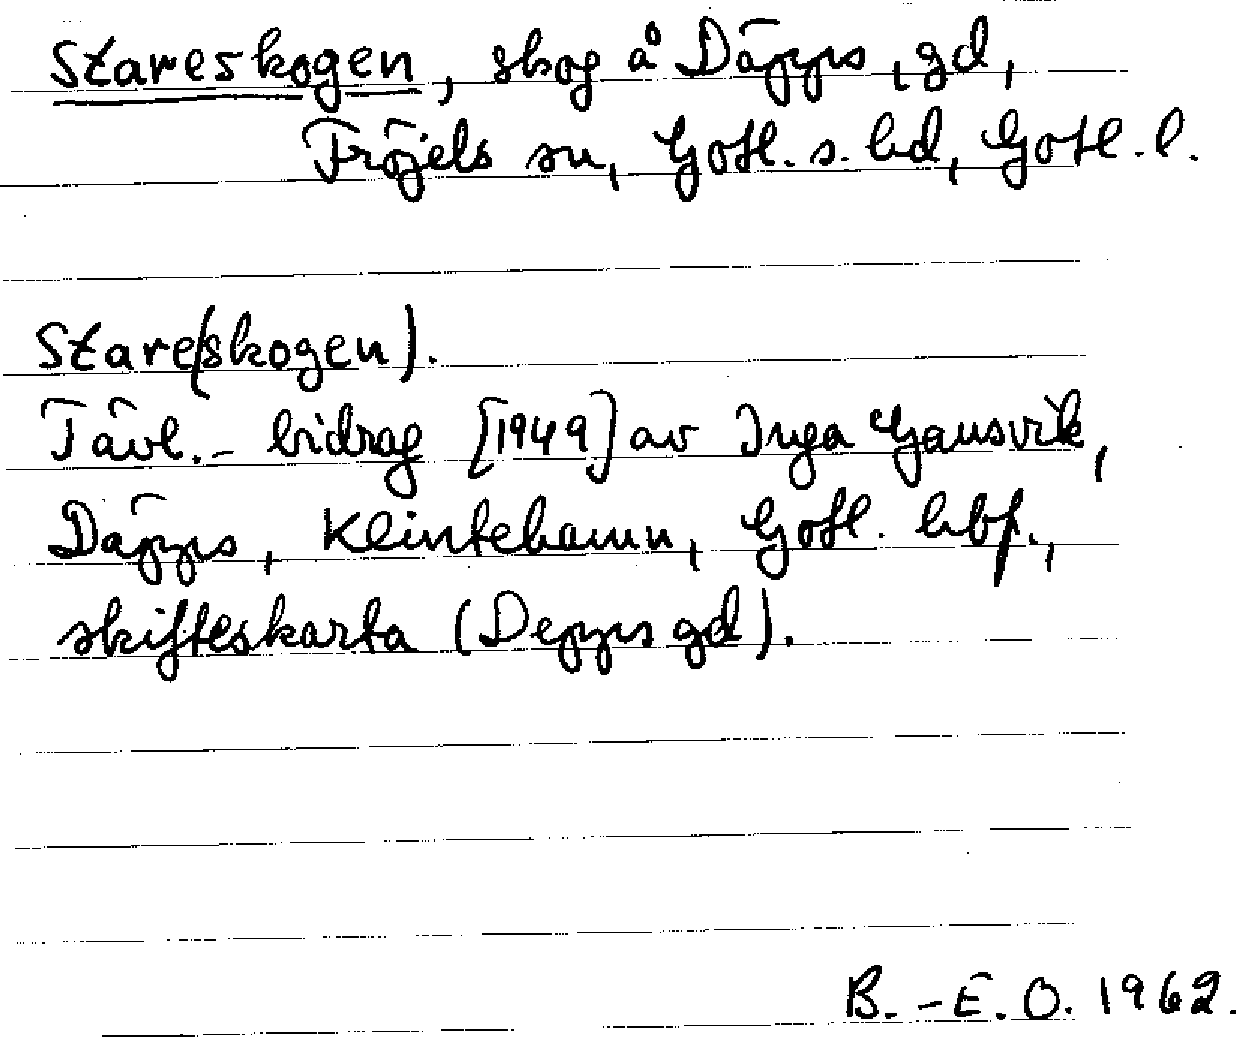 Stareskogen, skog å Däpps, gd,
Fröjels sn, Gotl. s. hd, Gotl. l.
Stare(skogen).
Tävl.- bidrag [1949] av Inga Gansvik,
Däpps, Klintehamn, Gotl. hbf.,
skifteskarta (Depps gd).
B.-E.O. 1962.